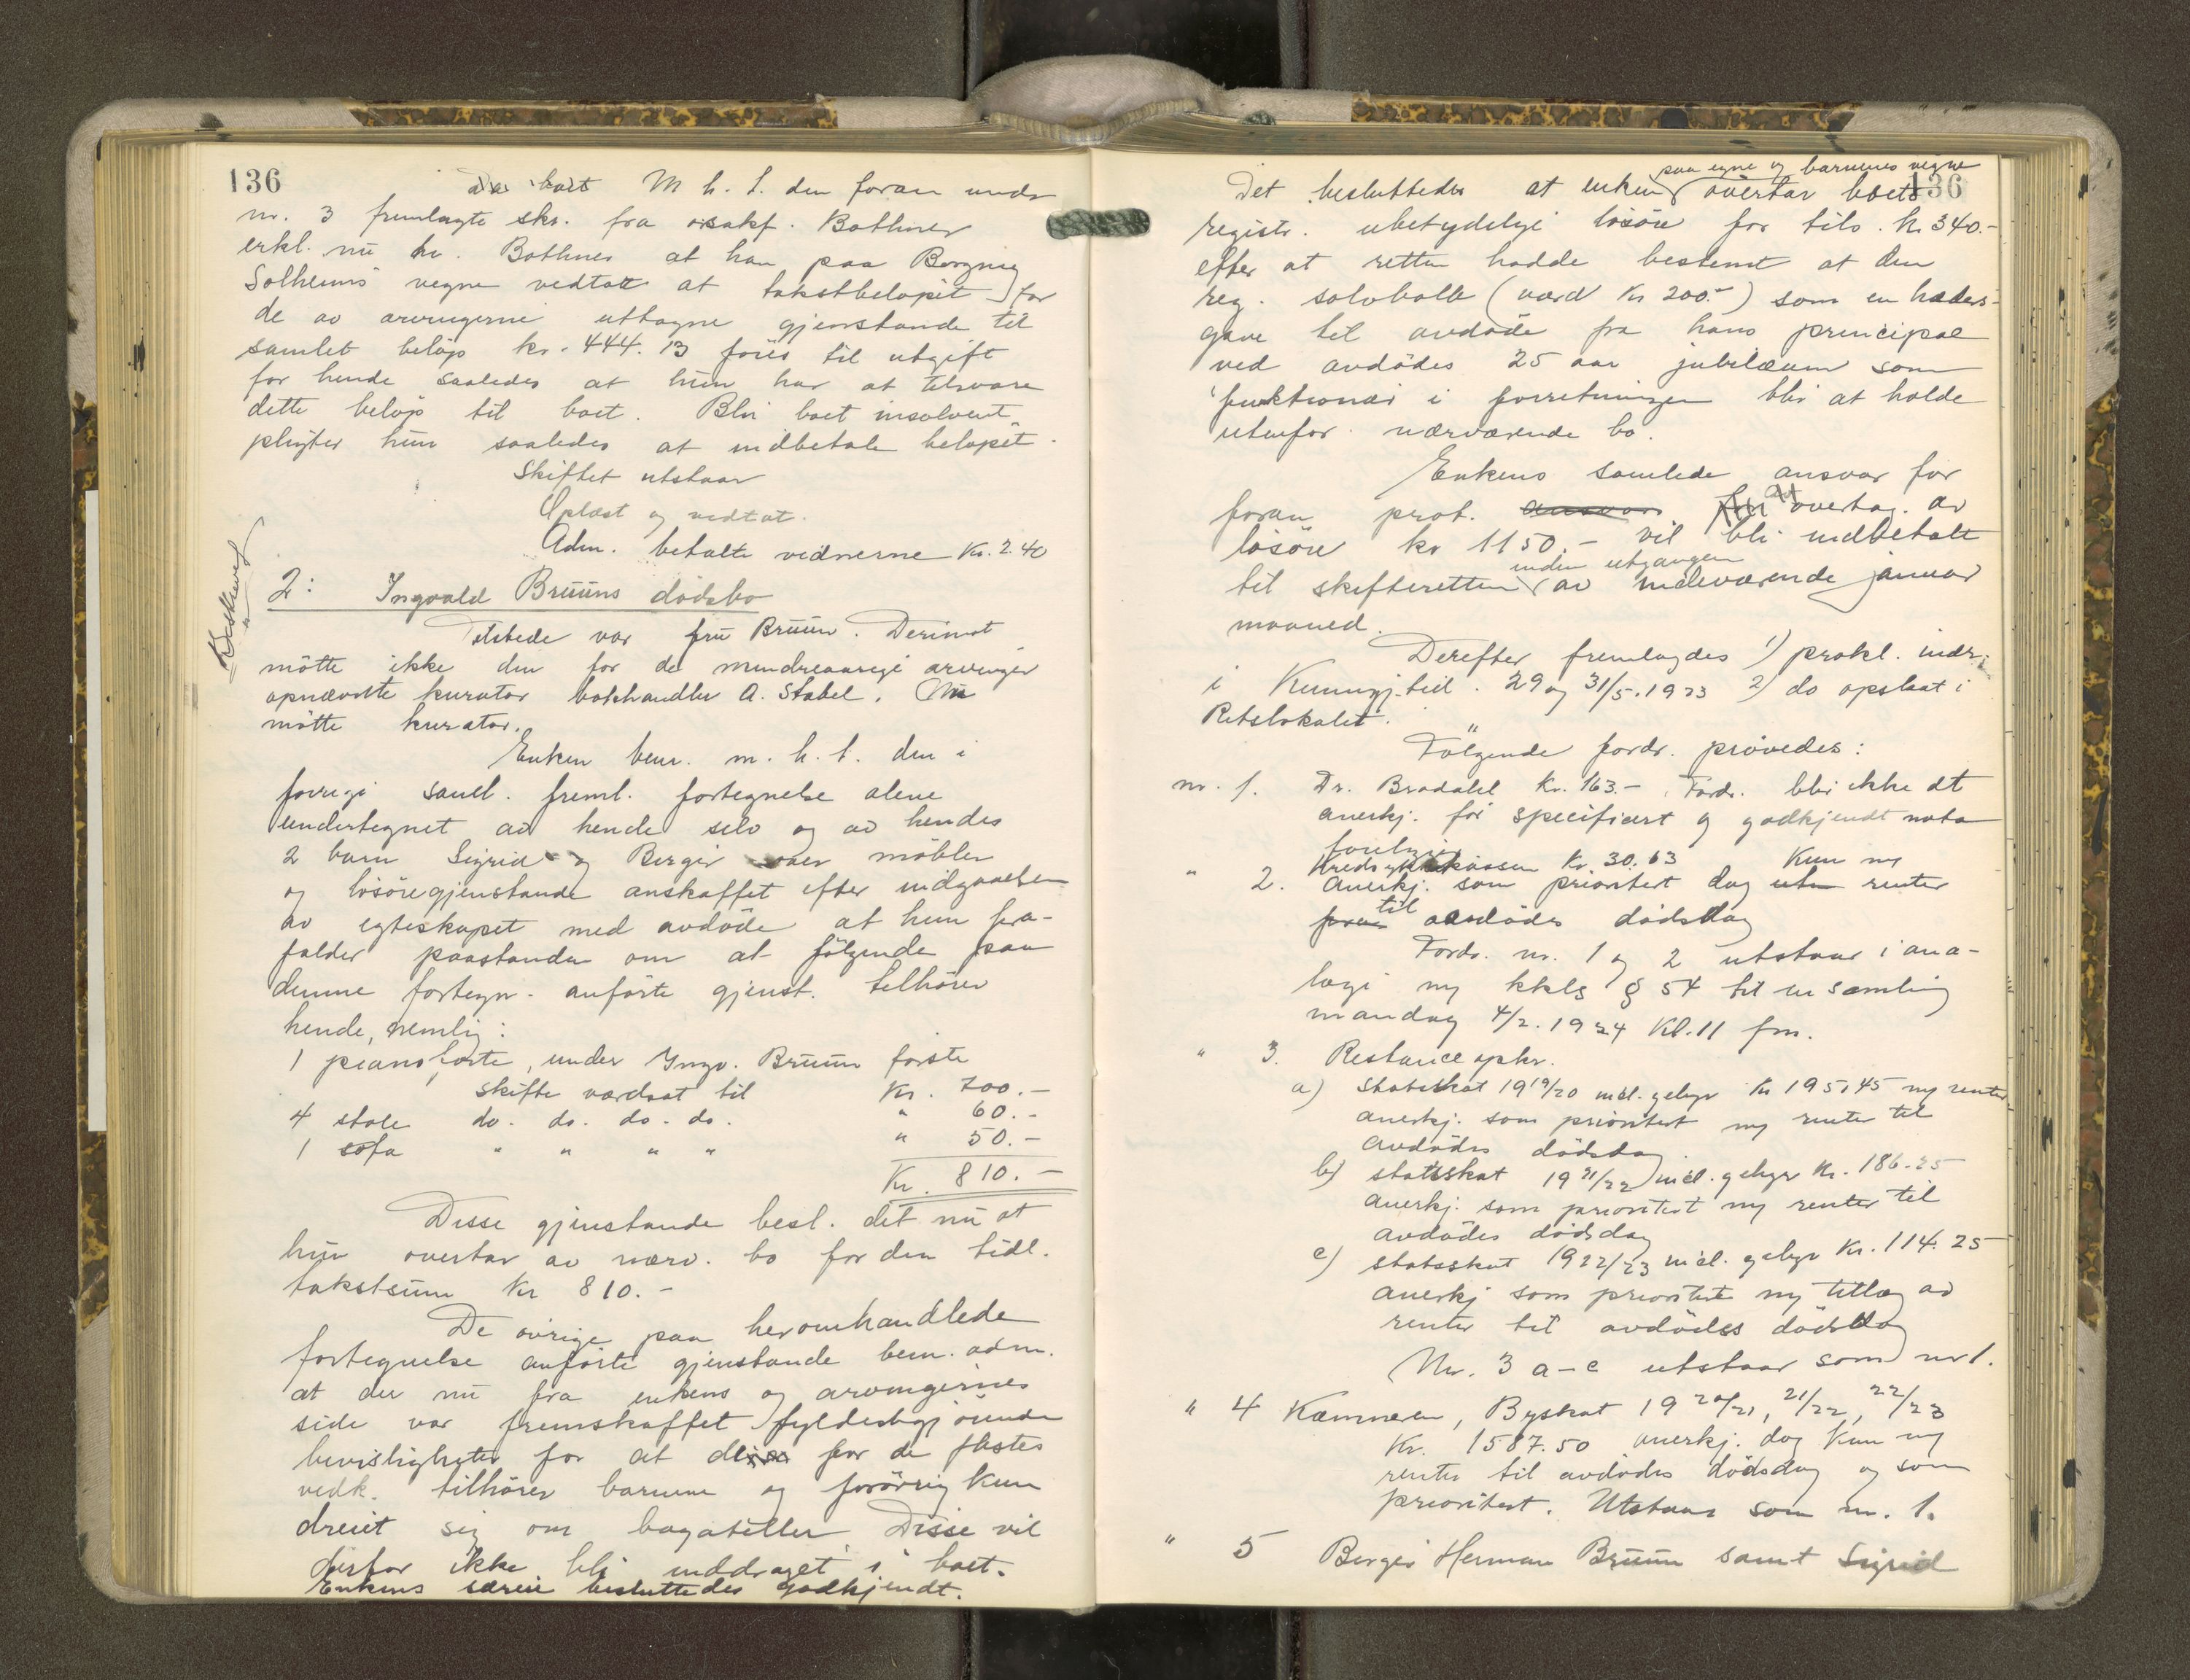 136
M h. t. den foran under
nr. 3 fremlagte skr. fra o.sakf. Bothner
erkl. nu hr. Bothner at han paa Borgny
Solheims vegne vedtar at takstbeløpet for
de av arvingerne uttagne gjenstande til
samlet beløp kr. 444.13 føres til utgift
for hende saaledes at hun har at tilsvare
dette beløp til boet. Blir boet insolvent
pligter hun saaledes at indbetale beløpet.
Skiftet utstaar
Oplæst og vedtat.
Adm. betalte vidnerne Kr. 2.40
Beskrevet
2: Ingvald Bruuns dødsbo
Tilstede var fru Bruun. Derimot
møtte ikke den for de mindreaarige arvinger
opnævnte kurator bokhandler A. Stabel. Nu
møtte kurator.
Enken bem. m. h. t. den i
forrige saml. freml. fortegnelse alene
undertegnet av hende selv og av hendes
2 barn Sigrid og Birger over møbler
og løsøregjenstande anskaffet efter indgaaelsen
av egteskapet med avdøde at hun fra-
falder paastanden om at følgende paa
denne fortegn. anførte gjenst. tilhører
hende, nemlig:
1 pianoforte, under Ingv. Bruun første
skifte værdsat til Kr. 700.-
4 stole do. do. do. do. " 60.-
1 sofa " " " " " 50.-
Kr. 810.-
Disse gjenstande besl. det nu at
hun overtar av nærv. bo for den tidl.
takstsum Kr 810.-
De øvrige paa heromhandlede
fortegnelse anførte gjenstande bem. adm.
at der nu fra enkens og arvingernes
side var fremskaffet fyldestgjørende
bevisligheter for at disse for de flestes
vedk. tilhører barnene og forøvrig kun
dreiet sig om bagateller. Disse vil
derfor ikke bli inddraget i boet.
Enkens særeie besluttedes godkjendt.
136
paa egne og barnenes vegne
Det besluttedes at enken overtar boets
registr. ubetydelige løsøre for tils. kr 340.-
efter at retten hadde bestemt at den
reg. sølvbolle (værd Kr 200.-) som en hæders-
gave til avdøde fra hans principal
ved avdødes 25 aar jubilæum som
funktionær i forretningen blir at holde
utenfor nærværende bo.
Enkens samlede ansvar for
foran prot. ansvar overtag. av
løsøre kr 1150.- vil bli indbetalt
inden utgangen
til skifteretten av indeværende januar
maaned.
Derefter fremlagdes 1) prokl. indr.
i Kunngj.tid. 29 og 31/5.1923 2) do opslaat i
Retslokalet.
Følgende fordr. prøvedes:
nr. 1. Dr. Brodahl Kr. 163.- Fordr. blir ikke at
anerkj. før specificert og godkjendt nota
foreligger
" 2. Kredssykekassen Kr. 30.63 Kun
anerkj. som prioritert dog uten renter
fra til avdødes dødsdag
Fordr. nr. 1 og 2 utstaar i ana-
logi kkls § 54 til en samling
mandag 4/2.1924 Kl. 11 fm.
" 3. Restanceopkr.
a) Statsskat 1919/20 incl. gebyr Kr 195,45 renter
anerkj. som prioritert renter til
avdødes dødsdag.
b) statsskat 1921/22 incl. gebyr Kr. 186.25
anerkj. som prioritert renter til
avdødes dødsdag
c) statsskat 1922/23 incl. gebyr Kr. 114.25
anerkj som prioritert tillæg av
renter til avdødes dødsdag
Nr. 3 a-c utstaar som nr 1.
" 4 Kæmneren, Byskat 1920/21, 21/22, 22/23
Kr. 1587.50 anerkj. dog kun
renter til avdødes dødsdag og som
prioritert. Utstaar som nr. 1.
" 5 Birger Herman Bruun samt Sigrid